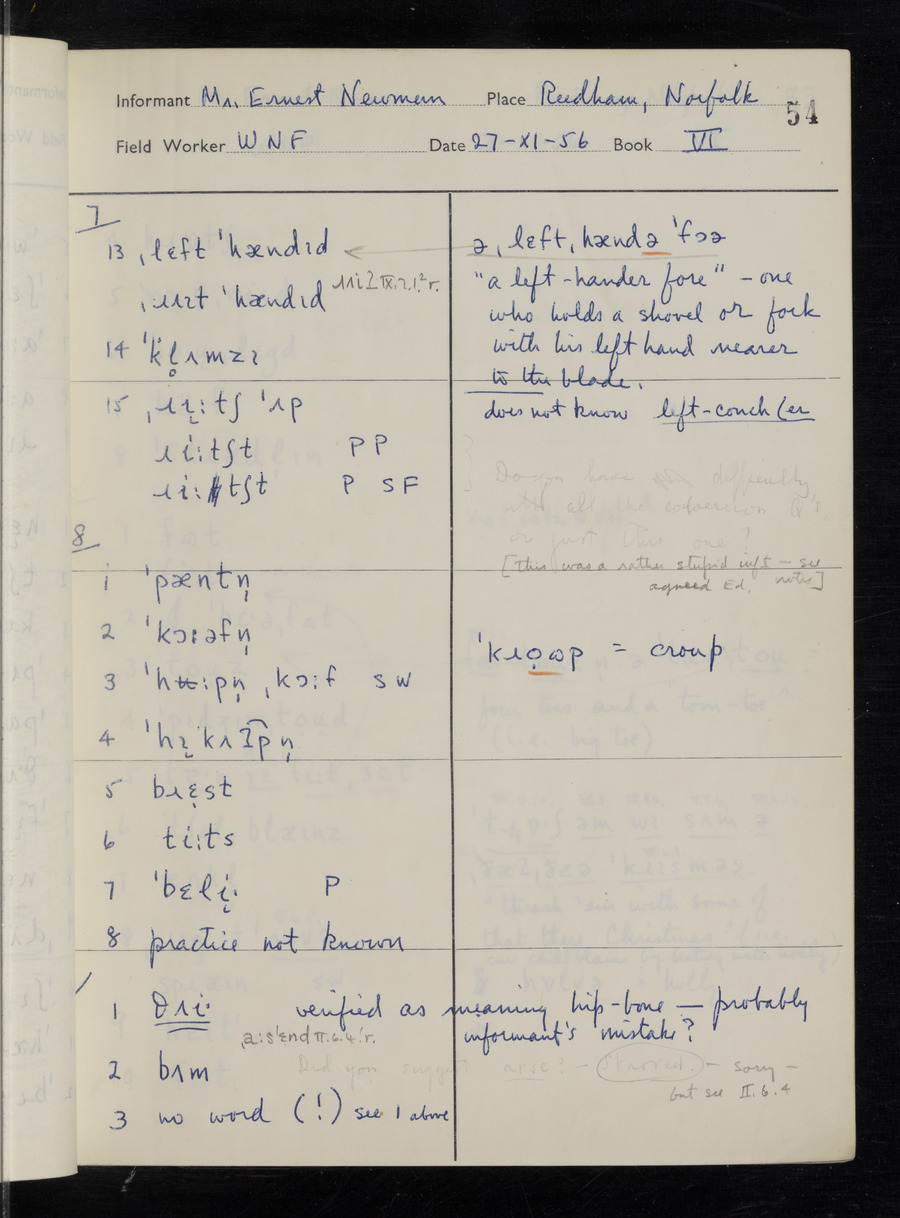 Informant Mr. Ernest Newman Place Reedham, Norfolk
54
Field Worker W N F Date 27-XI-56 Book VI
7
13 ˌlɛft ˈhændɪd
ə ˌlɛft ˌhændə ˈfɔə
"a left-hander fore" – one
who holds a shovel or fork
with his left hand nearer
to the blade.
14 ˈkl̥ʌmzɪ
15 ˌɹɪ̞:tʃ ˈʌp
does not know left-conch(er
ɹi:tʃt P P
ɹi:tʃt P SF
Do you have difficulty
with all the conversion Q's,
or just this one?
[This was a rather stupid inft – see
agreed Ed. notes]
8
1 ˈpæntn̩
2 ˈkɔ:əfn̩
ˈkɹo̞ɷp = croup
3 ˈhʉ:pn̩ ˌkɔ:f s w
4
5 bɹɛ̞st
6 ti:ts
7 ˈbɛli̞· P
8 practice not known
1 verified as meaning hip-bone – probably
informant's mistake?
ˌa:sˈɛnd II.6.4.r.
2 bʌm
Did you suggest arse? – Starred. – sorry –
but see II.6.4
3 no word (!) see 1 above